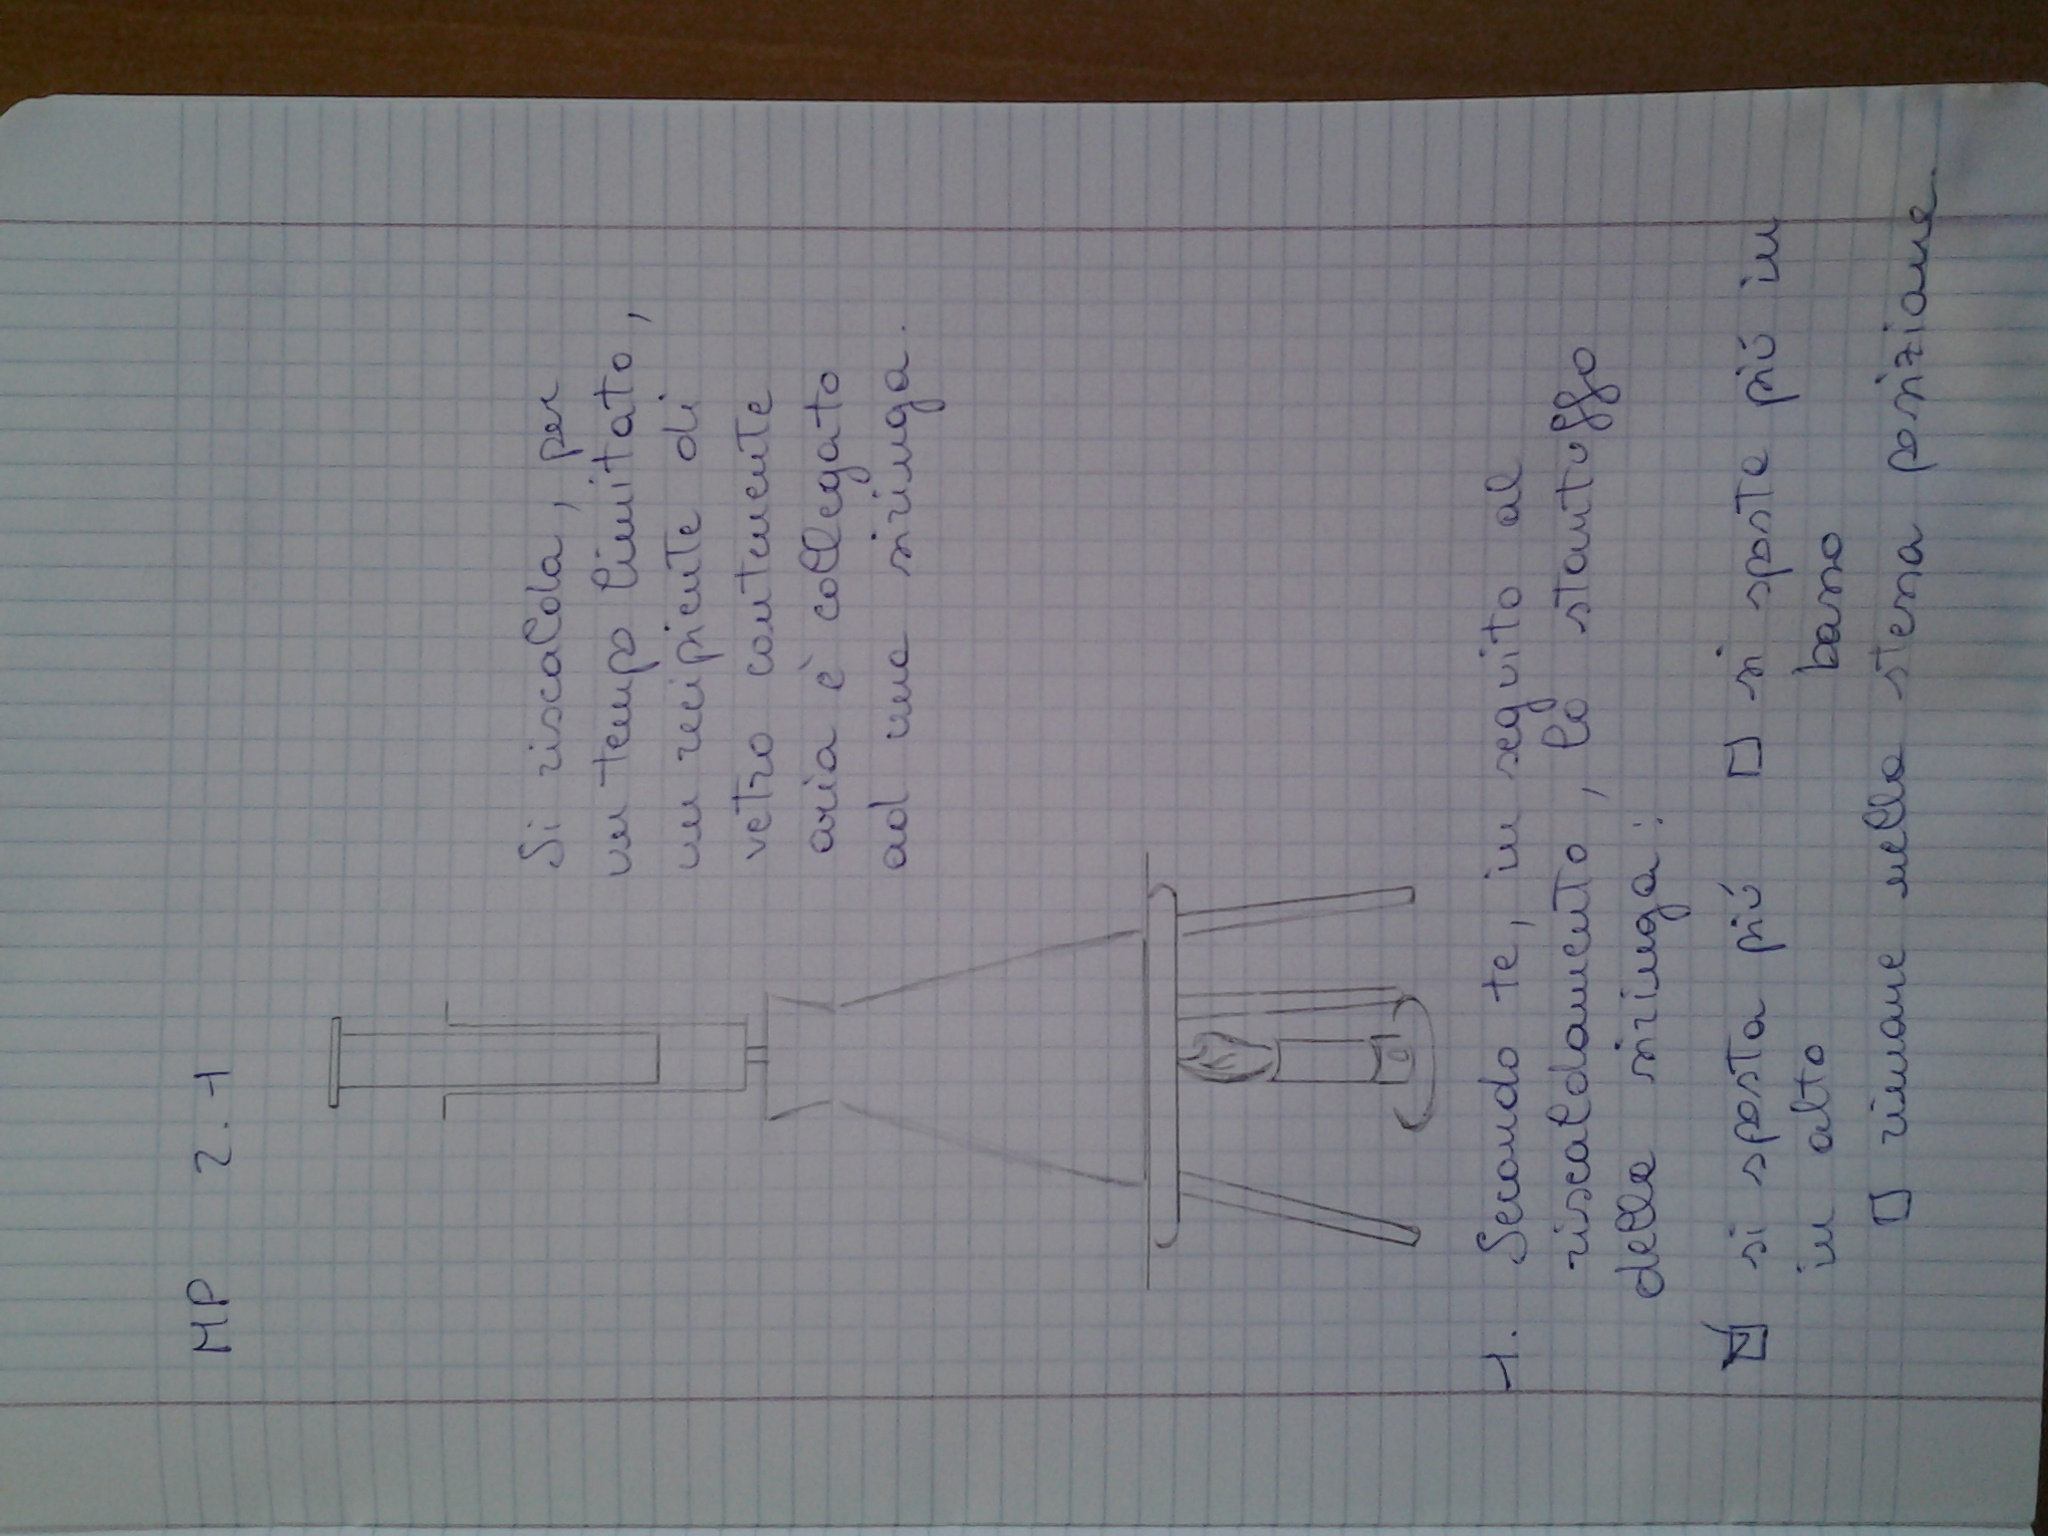 MP 2.1
Si riscalda, per
un tempo limitato,
un recipiente di
vetro contenente
aria è collegato
ad una siringa.
1. Secondo te, in seguito al
riscaldamento, lo stantuffo
della siringa:
☑ si sposta più □ si sposta più in
in alto basso
□ rimane nella stessa posizione.